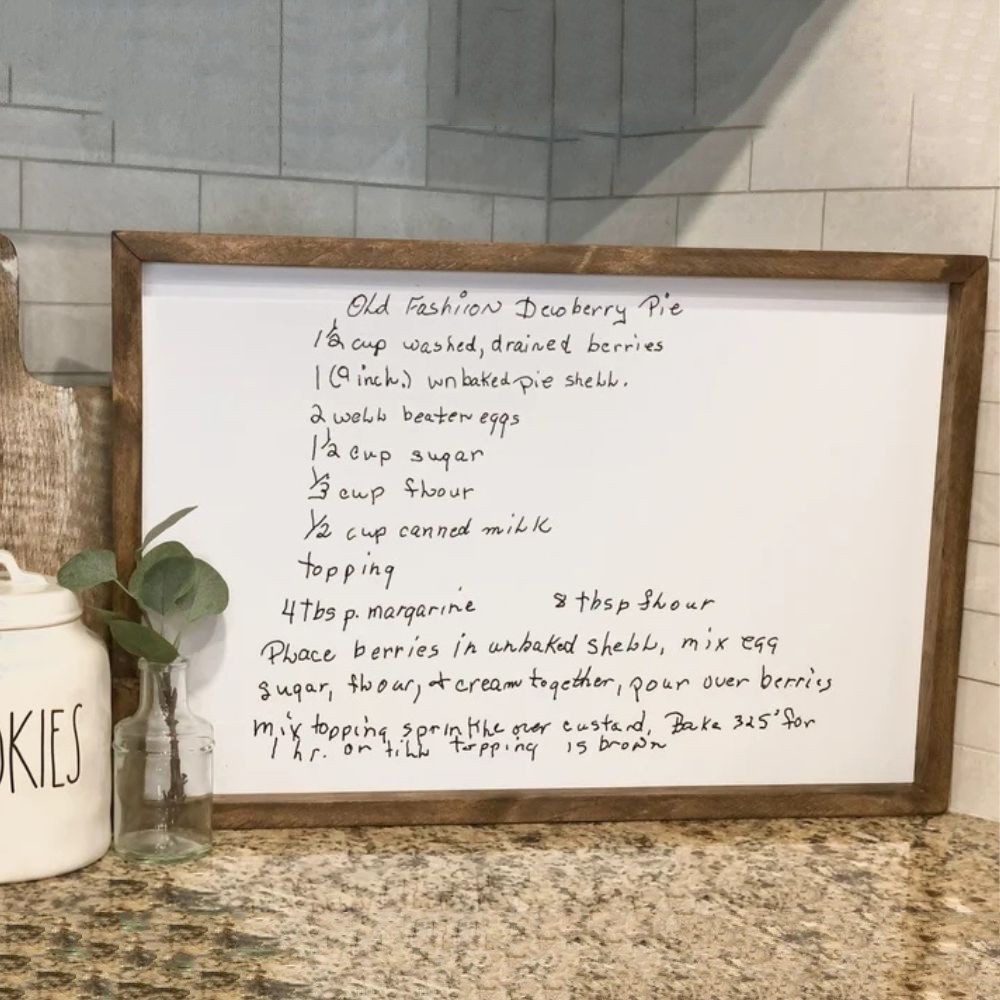 Old Fashion Dewberry Pie
1 1/2 cup washed, drained berries
1 (9 inch.) unbaked pie shell.
2 well beaten eggs
1 1/2 cup sugar
1/3 cup flour
1/2 cup canned milk
topping
4 tbsp. margarine 8 tbsp flour
Place berries in unbaked shell, mix egg
sugar, flour, & cream together, pour over berries
mix topping sprinkle over custard, Bake 325° for
1 hr. or till topping is brown
OKIES